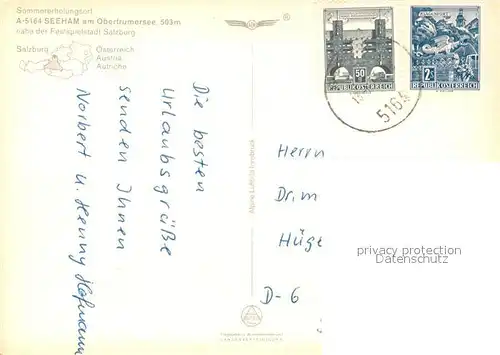 Sommererholungsort
A-5164 SEEHAM am Obertrumersee 503m
nahe der Festspielstadt Salzburg
Salzburg
Österreich
Austria
Autriche
50
REPUBLIK ÖSTERREICH
2
REPUBLIK ÖSTERREICH
5164
Die besten
Urlaubsgrüße
senden Ihnen
Norbert u. Henny Hofmann
Herrn
Dr. m
Hüge
D-6
privacy protection
Datenschutz